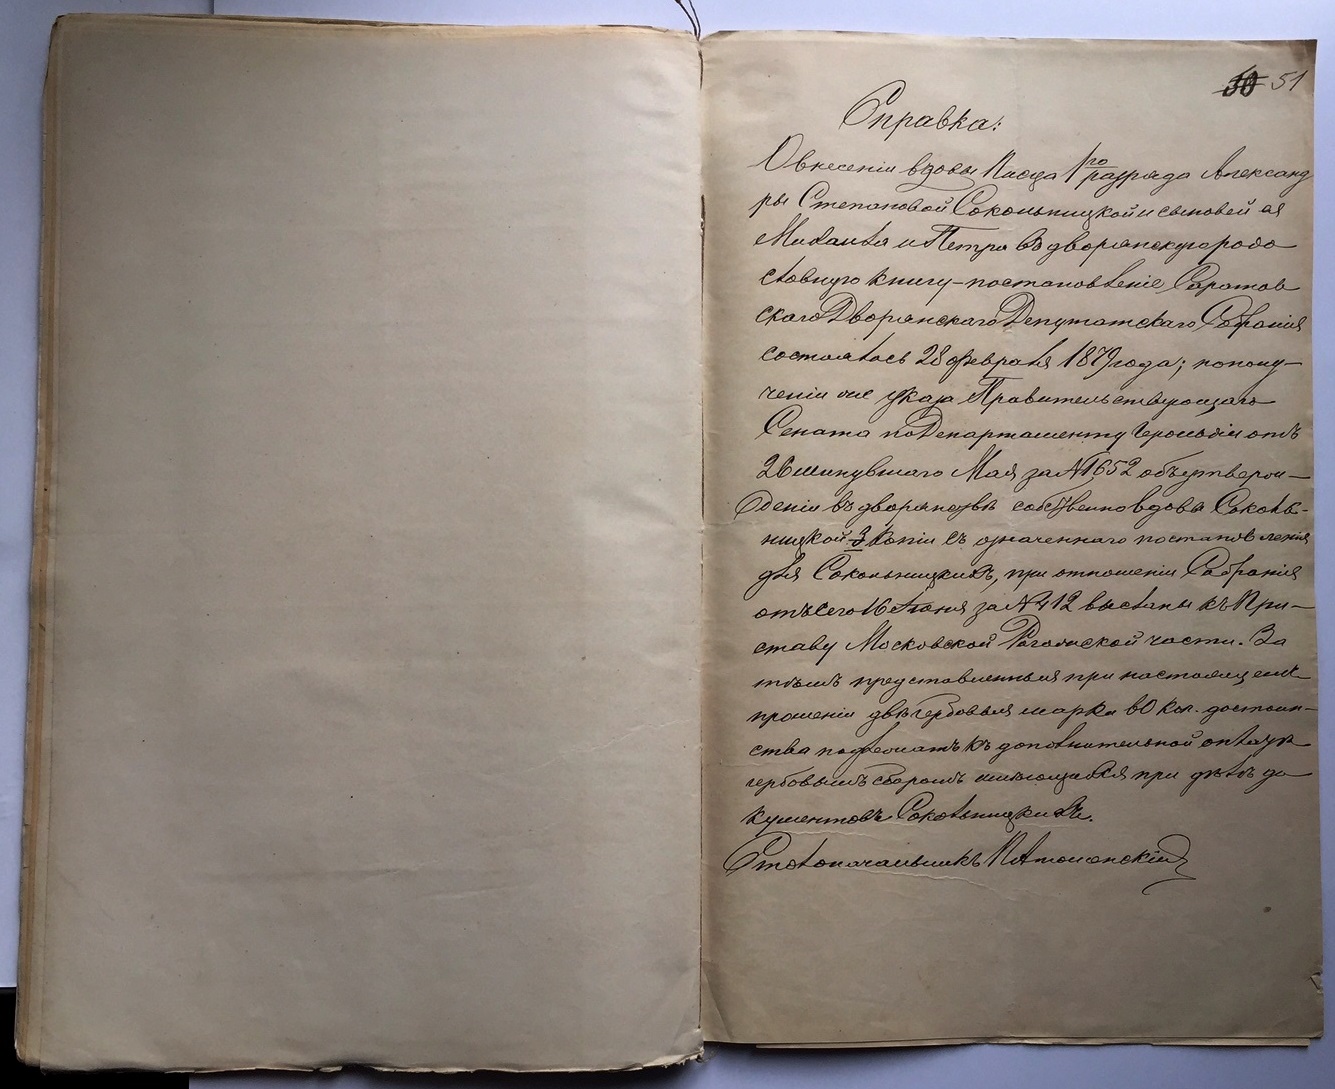 50 51
Справка:
О внесеніи вдовы Писца 1го разряда Александ
ры Степановой Сокольницкой и сыновей ея
Михаила и Петра въ дворянскую родо
словную книгу – постановленіе Саратов
скаго Дворянскаго Депутатскаго Собранія
состоялось 28 февраля 1879 года; по полу–
ченіи же указа Правительствующаго
Сената по Департаменту Герольдіи отъ
26 минувшаго Мая за № 1652 объ утверж–
деніи въ дворянствѣ собственно вдовы Соколь–
ницкой 3 копіи съ означеннаго постановленія
для Сокольницкихъ, при отношеніи Собранія
отъ сего 16 Іюня за № 412 высланы къ При–
ставу Московской Рогожской части. За
тѣмъ представленныя при настоящемъ
прошеніи двѣ гербовыя марки 60 коп. достоин–
ства подлежатъ къ дополнительной оплатѣ
гербовымъ сборомъ имѣющихся при дѣлѣ до
кументовъ Сокольницкихъ.
Столоначальникъ